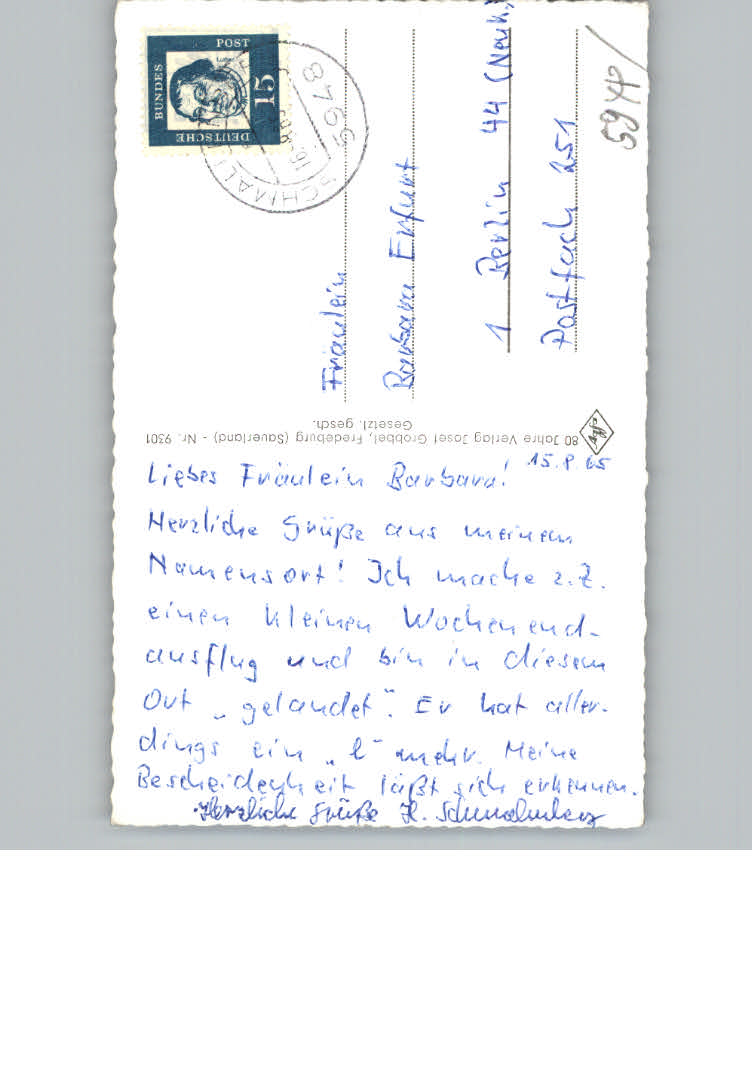 DEUTSCHE
BUNDES
POST
15
5948 SCHMALL
Fräulein
Barbara Erfurt
1 Berlin 44 (Neuk.)
Postfach 251
80 Jahre Verlag Josef Grobbel, Fredeburg (Sauerland) - Nr. 9301
Gesetzl. gesch.
Agfa
15.8.65
Liebes Fräulein Barbara!
Herzliche Grüße aus meinem
Namensort! Ich mache z.Z.
einen kleinen Wochenend-
ausflug und bin in diesem
Ort „gelandet". Er hat aller-
dings ein „l" mehr. Meine
Bescheidenheit läßt sich erkennen.
Herzliche Grüße H. Schmalenberg